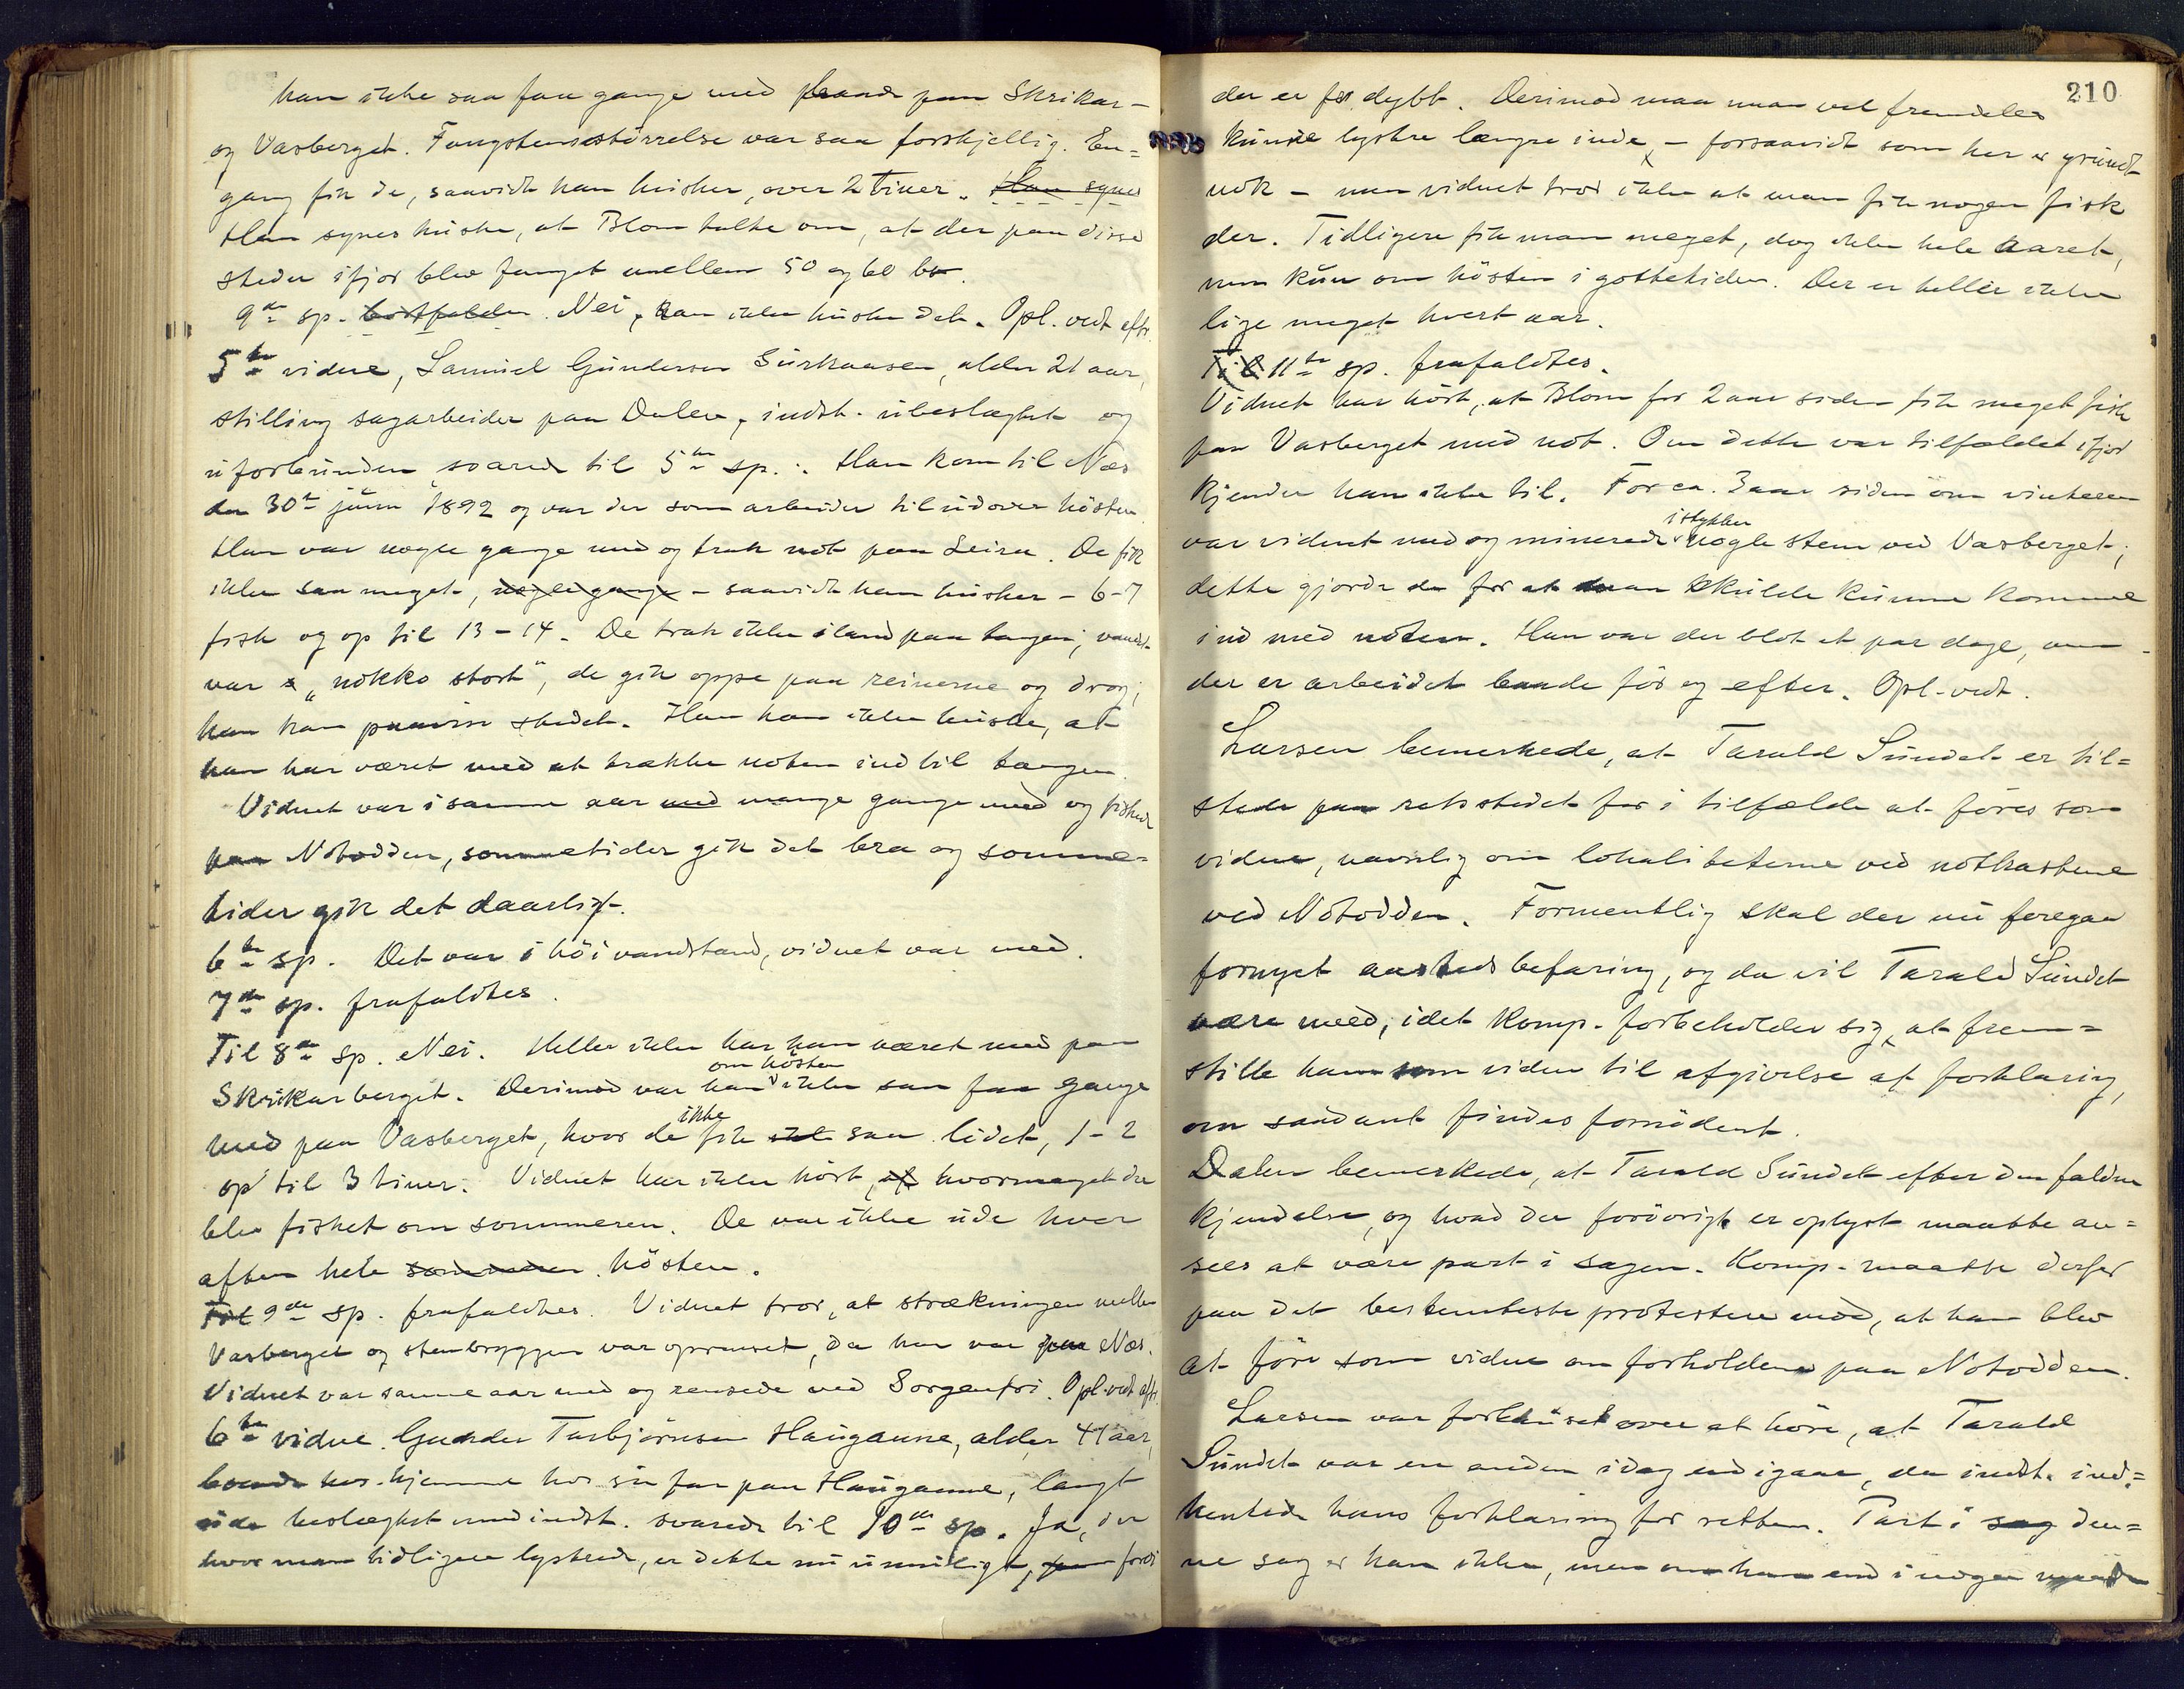 han ikke saa faa gange med paa Skrikar-
og Vasberget. Fangstens størrelse var saa forskjellig. En=
gang fik de, saavidt han husker, over 2 tiner. Han synes
Han synes huske, at Blom talte om, at der paa disse
steder ifjor blev fanget mellem 50 og 60 bo.
9de sp. bortfalder. Nei, kan ikke huske det. Opl. vedt. aftr.
5te vidne, Samuel Gunderson Surkaasen, alder 21 aar,
stilling sagarbeider paa Dalen, indst. ubeslægtet og
uforbunden svarede til 5te sp.: Han kom til Næs
den 30te juni 1892 og var der som arbeider til udover høsten.
Han var nogle gange med og trak not paa Leira. De fik
ikke saa meget, nogle gange - saavidt han husker - 6-7
fisk og op til 13-14. De trak ikke iland paa tangen; vandet
var "nokko stort", de gik oppe paa reinerne og drog;
han kan paavise stedet. Han kan ikke huske, at
han har været med at trække noten ind til tangen.
Vidnet var i samme aar med mange gange med og fisked
paa Notodden, sommetider gik det bra og somme=
tider gik det daarligt.
6te sp. Det var i høi vandstand, vidnet var med.
7de sp. frafaldtes.
Til 8de sp. Nei. Heller ikke har han været med paa
om høsten
Skrikarberget. Derimod var han ikke saa faa gange
ikke
med paa Vasberget, hvor de fik saa lidet, 1-2
op til 3 tiner. Vidnet har ikke hørt, hvormeget der
blev fisket om sommeren. De var ikke ude hver
aften hele sommeren høsten.
Til 9de sp. frafaldtes. Vidnet tror, at strækningen mellem
Vasberget og stenbryggen var oprenset, da han var paa Næs.
Vidnet var samme aar med og rensede ved Sorgenfri. Opl. vedt. aftr.
6te vidne. Gunder Torbjørnsen Haugane, alder 41 aar,
boende hos hjemme hos sin far paa Haugane, langt
ude beslægtet med indst. svarede til 10de sp. Ja, der
hvor man tidligere lystrede, er dette nu umuligt, fordi
210
der er for dybt. Derimod maa man vel fremdeles
kunne lystre længre inde, - forsaavidt som her er grundt
nok - men vidnet tror ikke at man fik nogen fisk
der. Tidligere fik man meget, dog ikke hele aaret,
men kun om høsten i gottetiden. Der er heller ikke
lige meget hvert aar.
Til 11te sp. frafaldtes.
Vidnet har hørt, at Blom for 2 aar siden fik meget fisk
paa Vasberget med not. Om dette var tilfældet ifjor
kjender han ikke til. For ca. 3 aar siden om vinteren
istykker
var vidnet med og minerede nogle stene ved Vasberget;
dette gjorde de for at man skulde kunne komme
ind med noten. Han var der blot et par dage, men
der er arbeidet baade før og efter. Opl. vedt.
Larsen bemerkede, at Tarald Sundet er til=
stede paa retsstedet for i tilfælde at føres som
vidne, navnlig om lokaliteterne ved notkastene
ved Notodden. Formentlig skal der nu foregaa
fornyet aastedsbefaring, og da vil Tarald Sundet
være med, idet Komp. forbeholder sig, at frem=
stille ham som vidne til afgivelse af forklaring,
om saadant findes fornødent.
Dalen bemerkede, at Tarald Sundet efter den faldne
kjendelse, og hvad der forøvrigt er oplyst maatte an=
sees at være part i sagen. Komp. maatte derfor
paa det bestemteste protestere mod, at han blev
at føre som vidne om forholdene paa Notodden.
Larsen var forbauset over at høre, at Tarald
Sundet var en anden idag end igaar, da indst. ind=
hentede hans forklaring for retten. Part i sag den=
ne sag er han ikke, men om han end i nogen maade